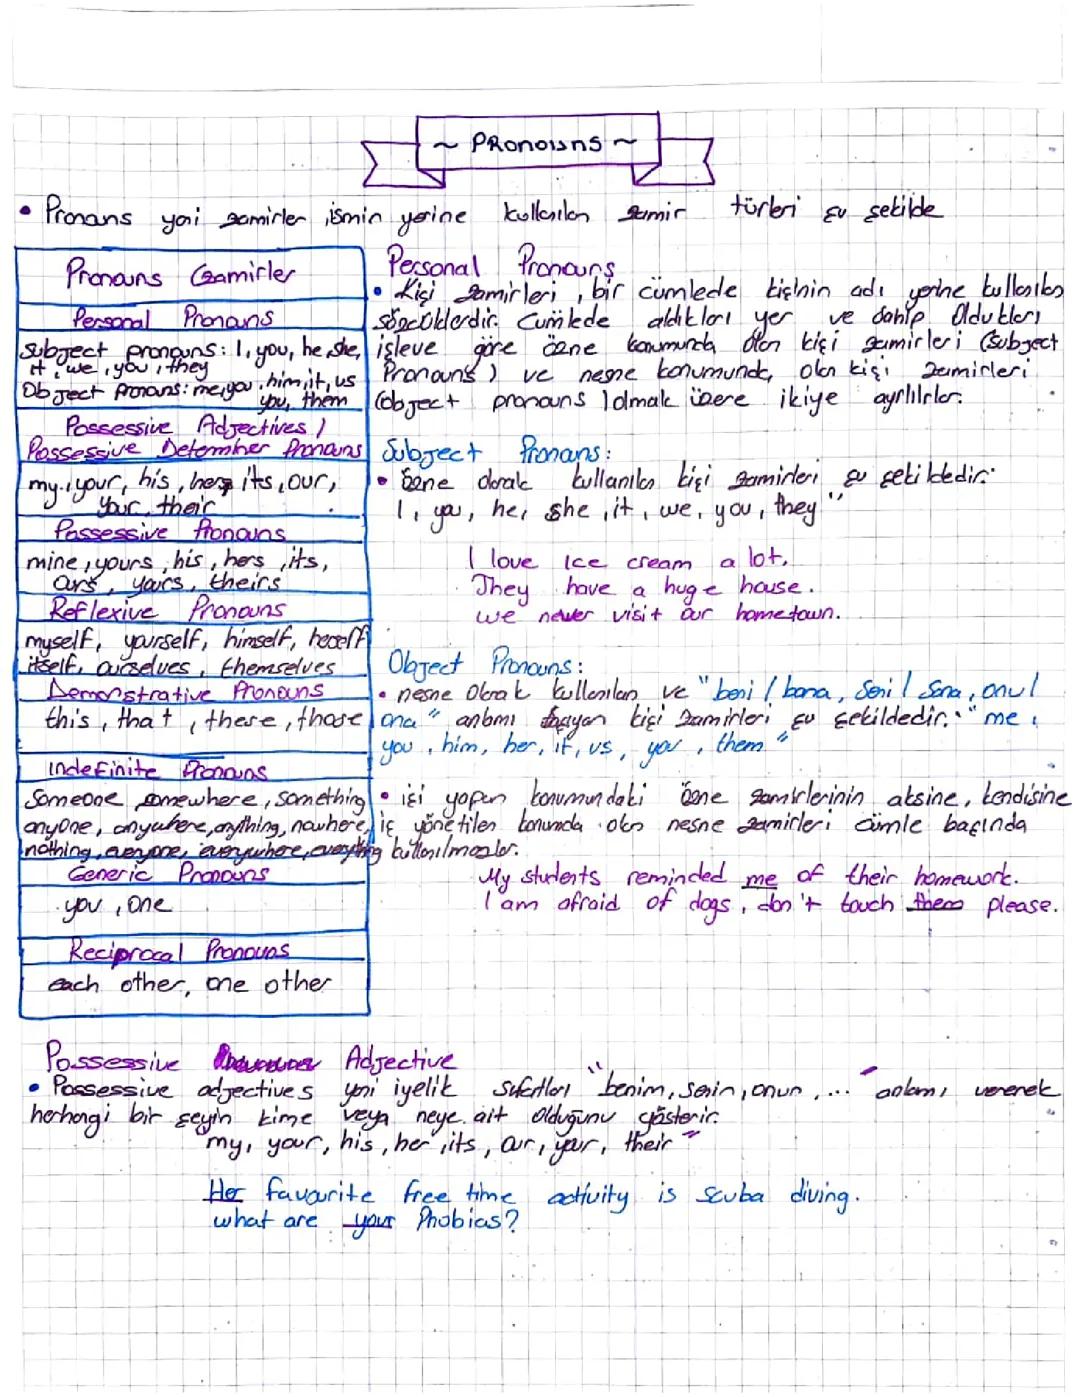 ~ PRonouns ~
• Pronouns yani zamirler ismin yerine kullanılan zamir türleri şu şekilde
Pronouns (zamirler
Personal Pronouns
Subject pronouns: I, you, he, she,
it, we, you, they
Object pronouns: me, you, him, it, us
you, them
Possessive Adjectives /
Possessive Determiner Pronouns
my, your, his, her, its, our,
your, their
Possessive Pronouns
mine, yours, his, hers, its,
ours, yours, theirs
Reflexive Pronouns
myself, yourself, himself, herself
itself, ourselves, themselves
Demonstrative Pronouns
this, that, there, those
Indefinite Pronouns
Someone somewhere, something
anyone, anywhere, anything, nowhere,
nothing, everyone, everywhere, everything
Generic Pronouns
you, one
Reciprocal Pronouns
each other, one other
Personal Pronouns
• Kişi zamirleri, bir cümlede kişinin adı yerine kullanılan
sözcüklerdir. Cümlede aldıkları yer ve sahip oldukları
işleve göre özne konumunda olan kişi zamirleri (Subject
Pronouns) ve nesne konumunda olan kişi zamirleri
(object pronouns) olmak üzere ikiye ayrılırlar.
Subject Pronouns:
• özne olarak kullanılan kişi zamirleri şu şekildedir:
I, you, he, she, it, we, you, they"
I love Ice cream a lot.
They have a huge house.
we never visit our hometown.
Object Pronouns:
• nesne olarak kullanılan ve "beni / bana, Seni / Sana, onu /
ona" anlamı taşıyan kişi zamirleri şu şekildedir. "me,
you, him, her, it, us, you, them"
• işi yapan konumundaki özne zamirlerinin aksine, kendisine
iş yönetilen konumda olan nesne zamirleri cümle başında
kullanılmazlar.
My students reminded me of their homework.
I am afraid of dogs, don't touch them please.
Possessive Adjective
• Possessive adjectives yani iyelik sıfatları "benim, senin, onun, ..." anlamı vererek
herhangi bir şeyin kime veya neye ait olduğunu gösterir.
my, your, his, her, its, our, your, their"
Her favourite free time activity is scuba diving.
what are your Phobias?